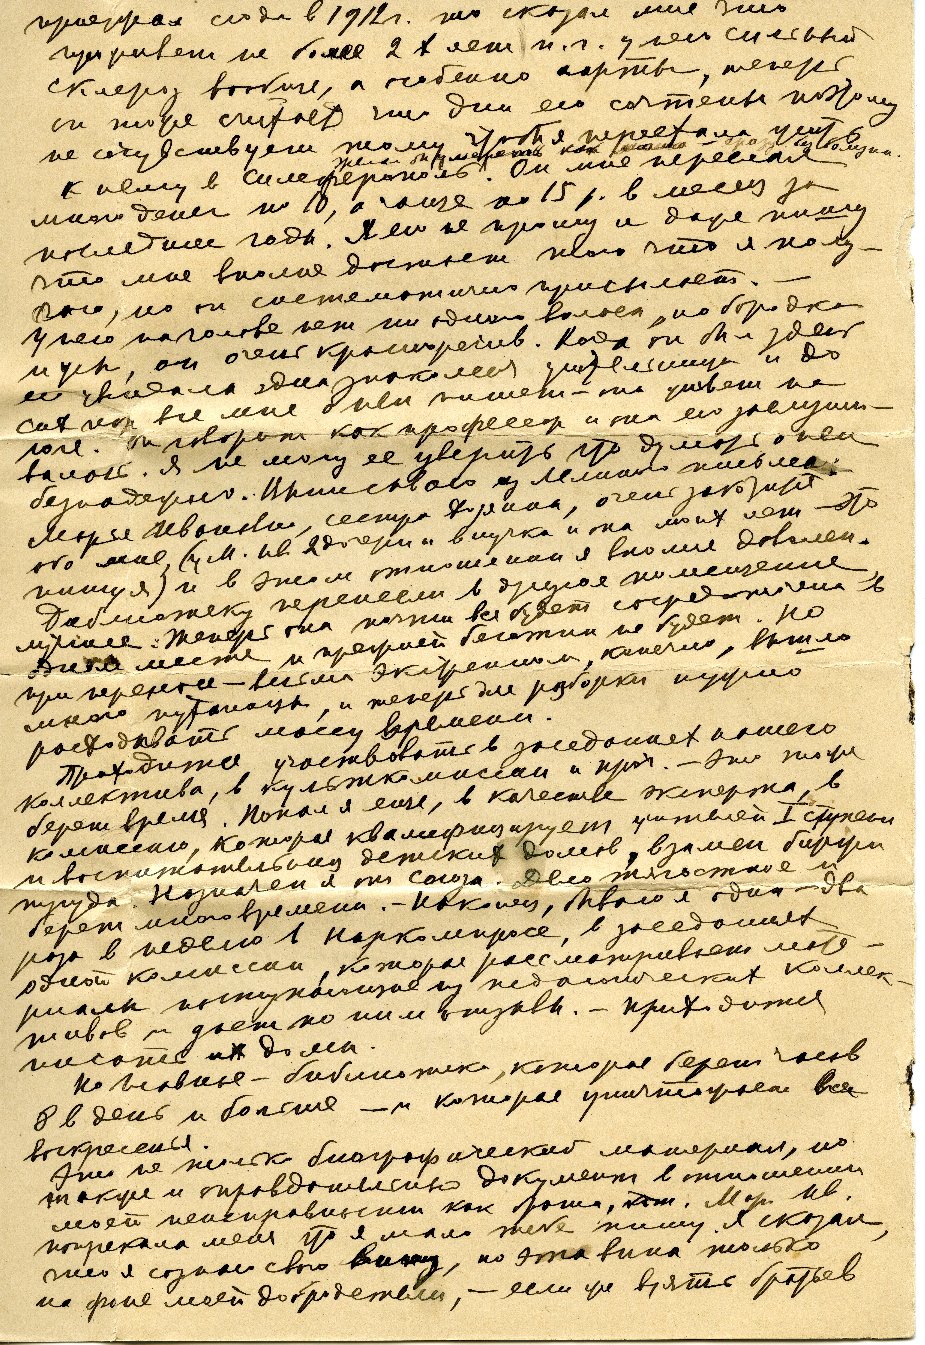 приезжал сюда в 1912 г. то сказал мне что
проживет не более 2х лет п. ч. у него сильный
склероз вообще, а особенно аорты, теперь
он тоже считает что дни его сочтены поэтому
не сочувствует тому чтобы я переехала
к нему в Симферополь. Он мне пересылал
много денег по 10, а чаще по 15 р. в месяц за
последние годы. Я его не прошу и даже пишу
что мне вполне достает того что я полу-
чаю, но он систематично присылает. —
У него на голове нет ни одного волоса, но бородка
и усы, он очень красноречив. Когда он был здесь
его увидала одна знакомая учительница и до
сих пор все мне о нем пишет — она живет на
юге. Он говорит как профессор и она его заслуши-
валась. Я не могу ее уверить что думать о нем
безнадежно. Выписываю из Лениного письма:
Марья Ивановна, сестра хозяина, очень заботится
обо мне, (у М. Ив. 2 дочери и внучка и она моих лет — это
пишу я) и в этом отношении я вполне доволен.
Библиотеку перенесли в другое помещение,
лучшее: теперь она почти вся будет сосредоточена в
одном месте и прежней беготни не будет. Но
при переносе — весьма экстренном, конечно, вышло
много путаницы, и теперь для разборки нужно
расходовать массу времени.
Приходится участвовать в заседаниях нашего
коллектива, в культкомиссии и проч. — Это тоже
берет время. Попал я еще, в качестве эксперта, в
комиссию, которая квалифицирует учителей I ступени
и воспитательниц детских домов, взамен биржи
труда. Назначен я от союза. Дело тягостное и
берет много времени. — Наконец, бываю я один — два
раза в неделю в Наркомпросе, в заседаниях
одной комиссии, которая рассматривает мате-
риалы поступающие из педагогических коллек-
тивов и дает по ним отзывы. — Приходится
писать их дома.
Но главное — библиотека, которая берет часов
8 в день и больше — и которая уничтожает все
воскресенья.
Это не только биографический материал, но
также и оправдательный документ в отношении
моей неисправности как брата. Мар. Ив.
попрекала меня что я мало тебе пишу. Я сказал,
что я сознаю свою вину, но эта вина только
на фоне моей добродетели, — если же взять братьев